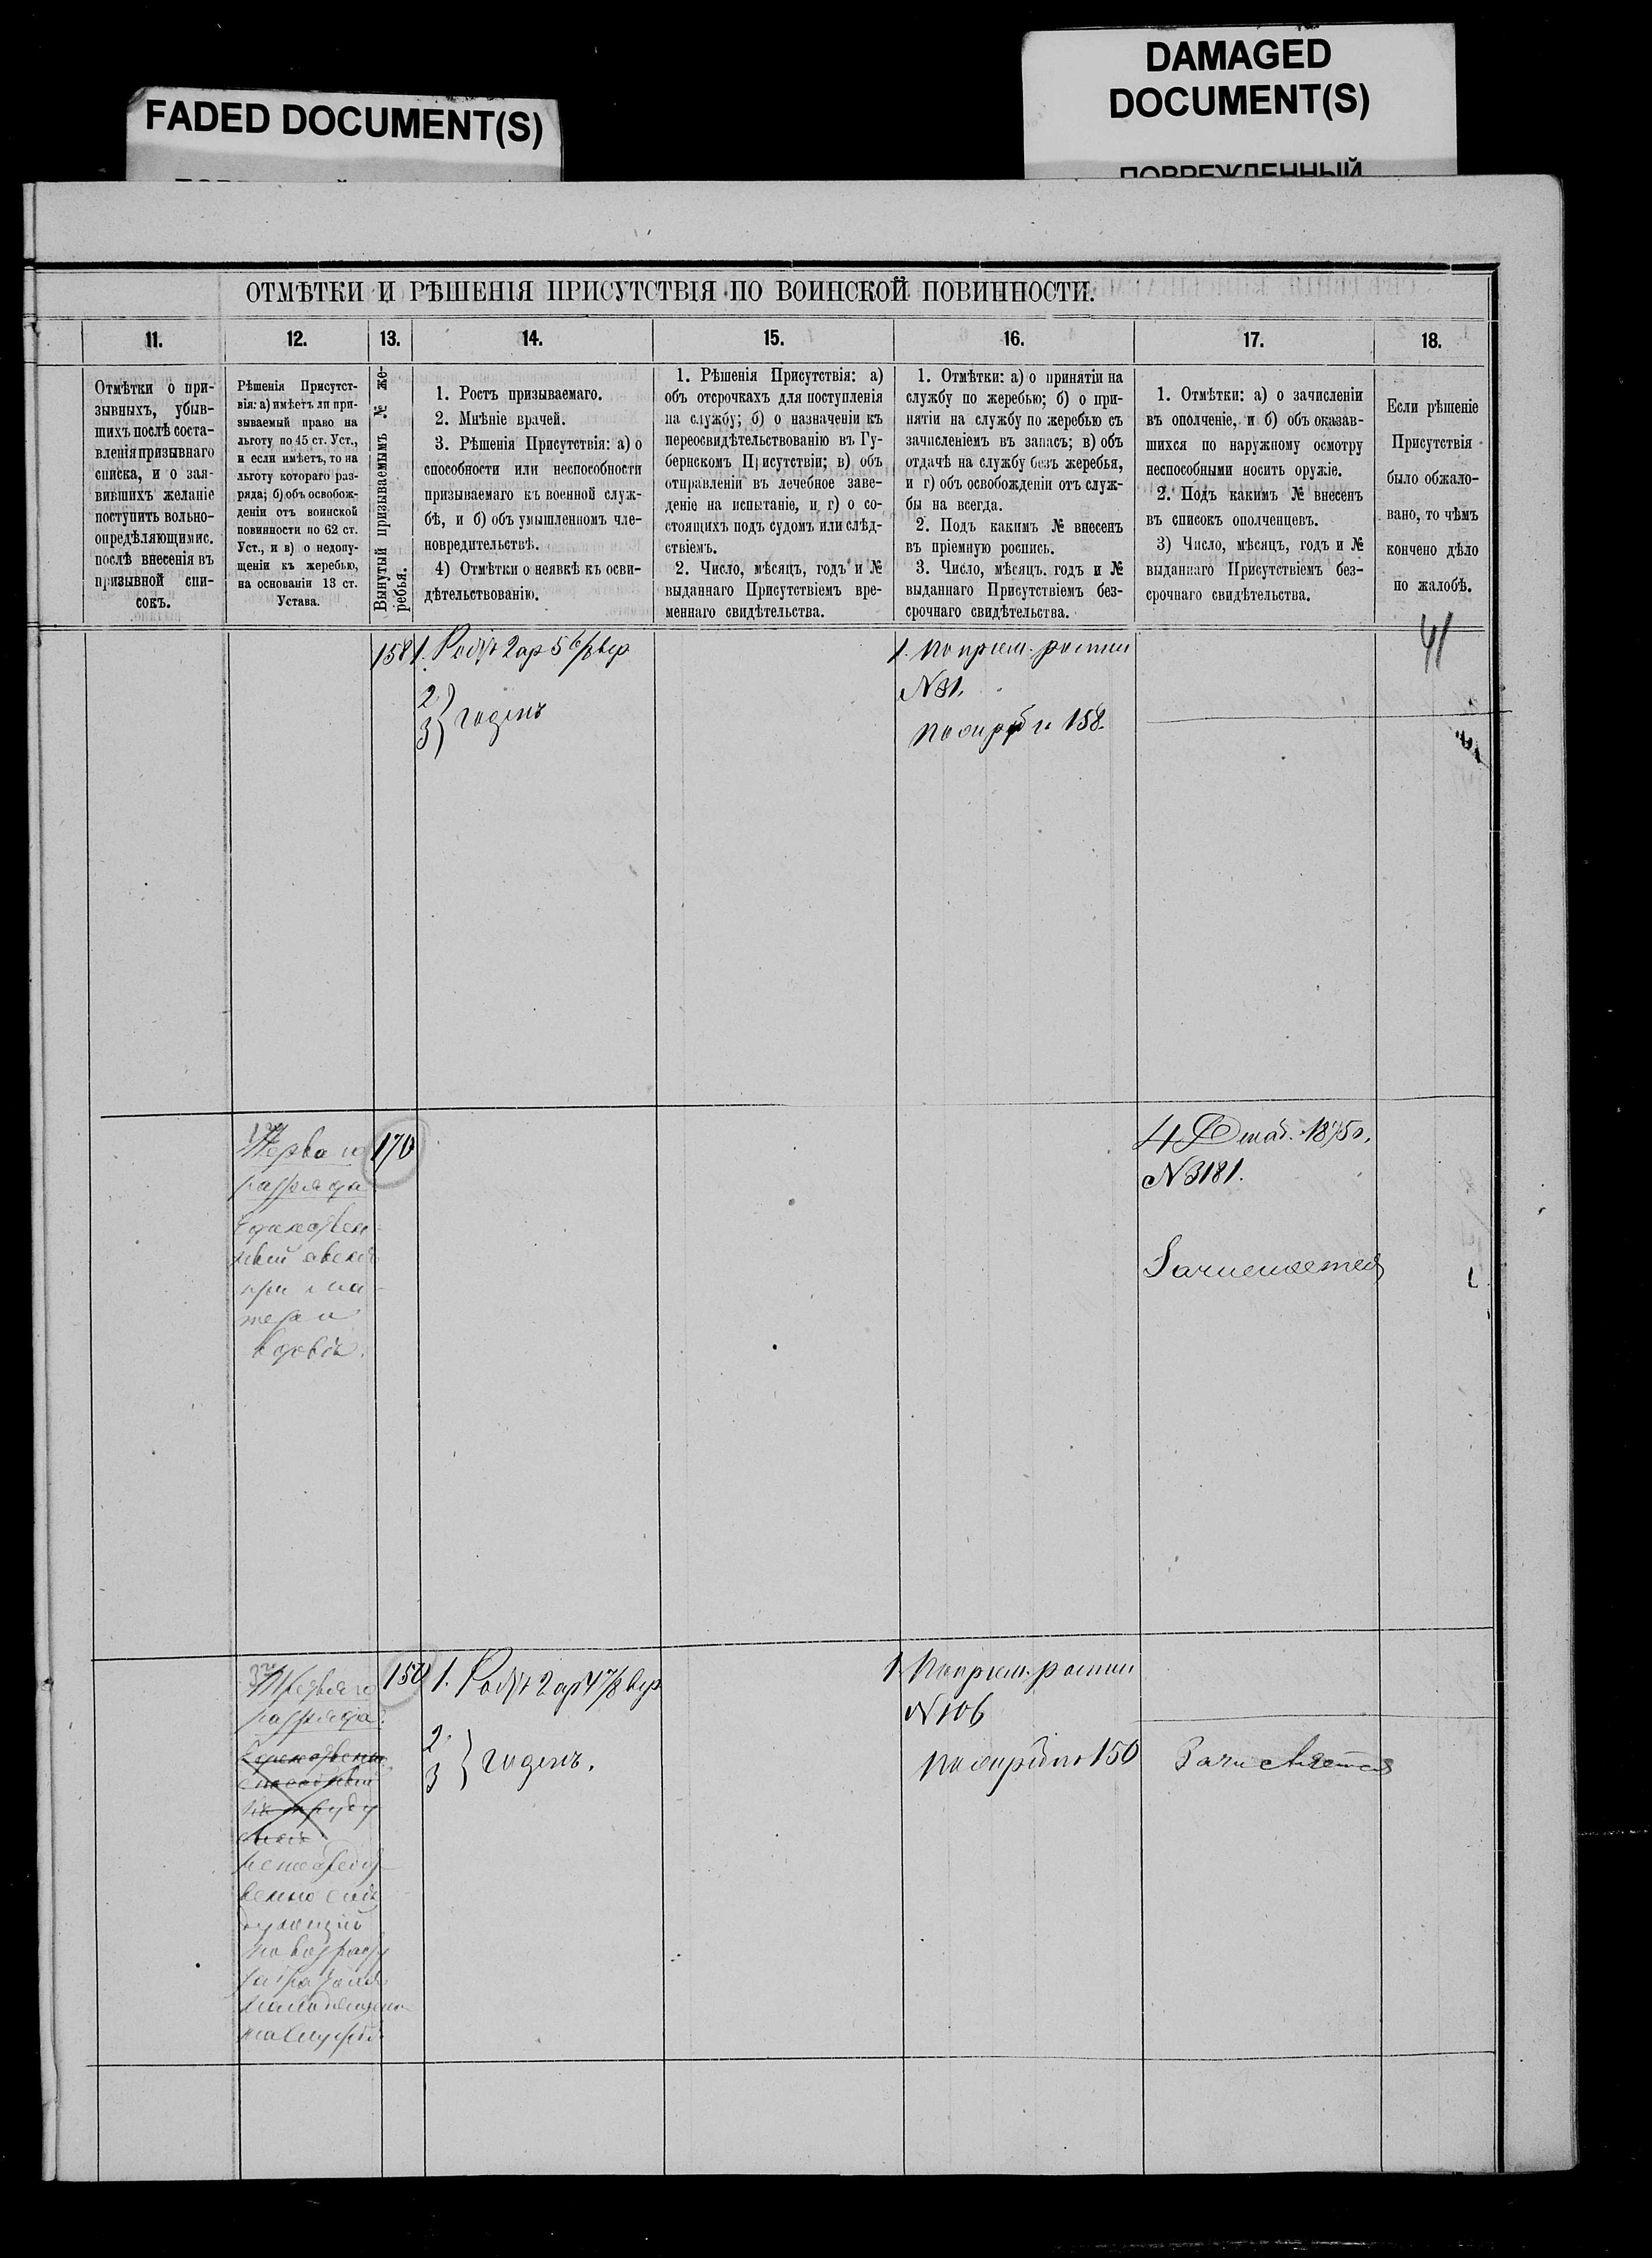 FADED DOCUMENT(S)
DAMAGED
DOCUMENT(S)
ПОВРЕЖДЕННЫЙ
ОТМѢТКИ И РѢШЕНІЯ ПРИСУТСТВІЯ ПО ВОИНСКОЙ ПОВИННОСТИ.
11.
Отмѣтки о при-
зывныхъ, убыв-
шихъ послѣ соста-
вленія призывнаго
списка, и о зая-
вившихъ желаніе
поступить вольно-
опредѣляющимис.
послѣ внесенія въ
призывной спи-
сокъ.
12.
Рѣшенія Присутст-
вія: а) имѣетъ ли при-
зываемый право на
льготу по 45 ст. Уст.,
и если имѣетъ, то на
льготу котораго раз-
ряда; б) объ освобож-
деніи отъ воинской
повинности по 62 ст.
Уст., и в) о недопу-
щеніи къ жеребью,
на основаніи 13 ст.
Устава.
13.
Вынутый призываемымъ № же-
ребья.
14.
1. Ростъ призываемаго.
2. Мнѣніе врачей.
3. Рѣшенія Присутствія: а) о
способности или неспособности
призываемаго къ военной служ-
бѣ, и б) объ умышленномъ чле-
новредительствѣ.
4) Отмѣтки о неявкѣ къ осви-
дѣтельствованію.
15.
1. Рѣшенія Присутствія: а)
объ отсрочкахъ для поступленія
на службу; б) о назначеніи къ
переосвидѣтельствованію въ Гу-
бернскомъ Присутствіи; в) объ
отправленіи въ лечебное заве-
деніе на испытаніе, и г) о со-
стоящихъ подъ судомъ или слѣд-
ствіемъ.
2. Число, мѣсяцъ, годъ и №
выданнаго Присутствіемъ вре-
меннаго свидѣтельства.
16.
1. Отмѣтки: а) о принятіи на
службу по жеребью; б) о при-
нятіи на службу по жеребью съ
зачисленіемъ въ запасъ; в) объ
отдачѣ на службу безъ жеребья,
и г) объ освобожденіи отъ служ-
бы на всегда.
2. Подъ какимъ № внесенъ
въ пріемную роспись.
3. Число, мѣсяцъ, годъ и №
выданнаго Присутствіемъ без-
срочнаго свидѣтельства.
17.
1. Отмѣтки: а) о зачисленіи
въ ополченіе, и б) объ оказав-
шихся по наружному осмотру
неспособными носить оружіе.
2. Подъ какимъ № внесенъ
въ списокъ ополченцевъ.
3) Число, мѣсяцъ, годъ и №
выданнаго Присутствіемъ без-
срочнаго свидѣтельства.
18.
Если рѣшеніе
Присутствія
было обжало-
вано, то чѣмъ
кончено дѣло
по жалобѣ.
41
158
1. Ростъ 2 ар 5 6/8 вер
2.
3 } годенъ
1. По пріем. росписи
№ 81.
158.
Перваго
разряда
Единствен-
ный
при ма-
тери
вдовѣ.
170
4 1875 г.
№ 3181.
Зачисляется
Третьяго
разряда
150
1. Ростъ 2 ар 4 7/8 вер
2.
3 } годенъ.
1 По пріем. росписи
№ 106
150
Зачисляется
непосредст-
венно слѣ-
дующій
по возрасту
за братомъ